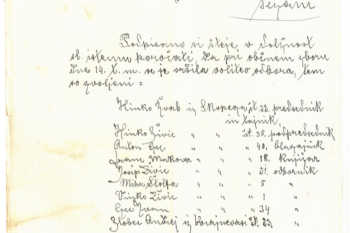 Sežani
Podpisano si šteje v dolžnost
sl. istemu poročati, da pri občnem zboru
dne 14. t. m. se je vršila volitev odbora, tem
so izvoljeni :
Hinko Žvab iz Skopega št. 22. predsednik
in tajnik
Hinko Živic " " št. 38. podpredsednik
Anton " " " 40. blagajnik
Ivan " " " 18. knjižar
Josip Živic " " " 21. odbornik
Miha Štolfa " " " 5 "
Vinko Živic " " " 1 "
Ivan " " " 34 "
Andrej iz št. 23. "